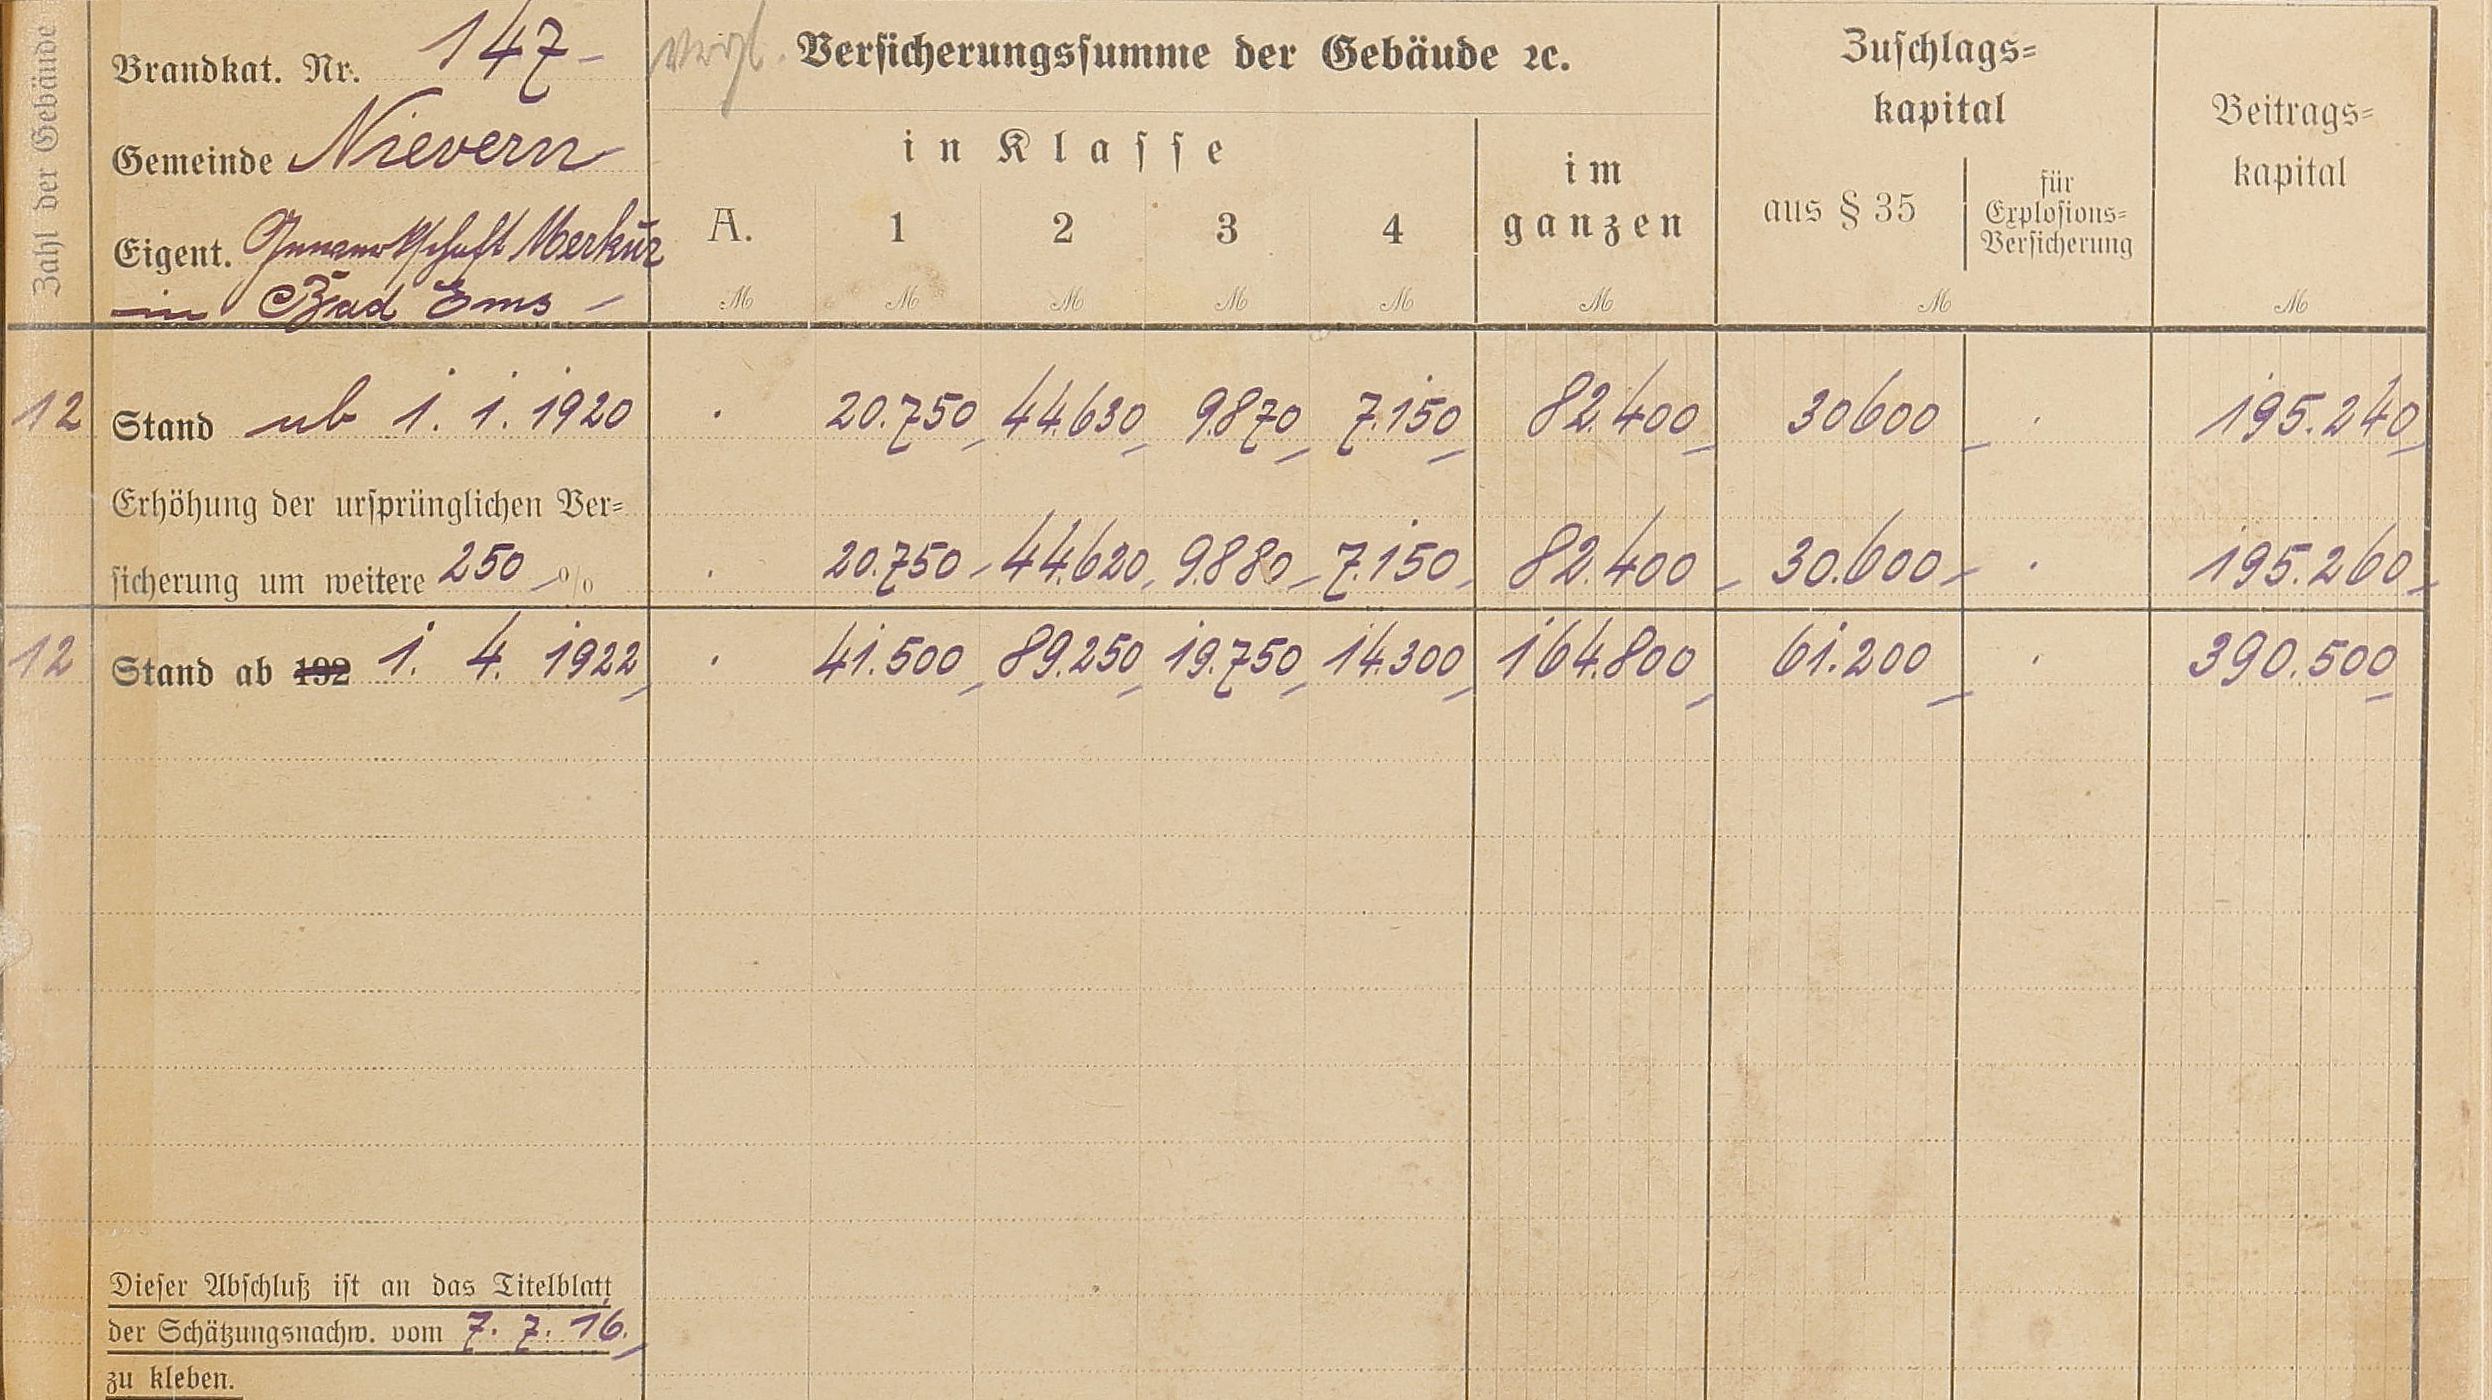 Zahl der Gebäude
Brandkat. Nr. 147 -
Gemeinde Nievern
Eigent. Gewerkschaft Merkur
in Bad Ems -
vergl. Versicherungssumme der Gebäude ꝛc.
in Klasse
A. 1 2 3 4
im
ganzen
Zuschlags=
kapital
aus § 35
für
Explosions=
Versicherung
Beitrags=
kapital
M M M M M M M M
12 Stand ab 1. 1. 1920 . 20.750,- 44.630,- 9.870,- 7.150,- 82.400,- 30600,- . 195.240,-
Erhöhung der ursprünglichen Ver=
sicherung um weitere 250 % . 20.750,- 44.620,- 9.880,- 7.150,- 82.400,- 30.600,- . 195.260,-
12 Stand ab 192 1. 4. 1922, . 41.500,- 89.250,- 19.750,- 14.300,- 164.800,- 61.200,- . 390.500,-
Dieser Abschluß ist an das Titelblatt
der Schätzungsnachw. vom 7. 7. 16.
zu kleben.